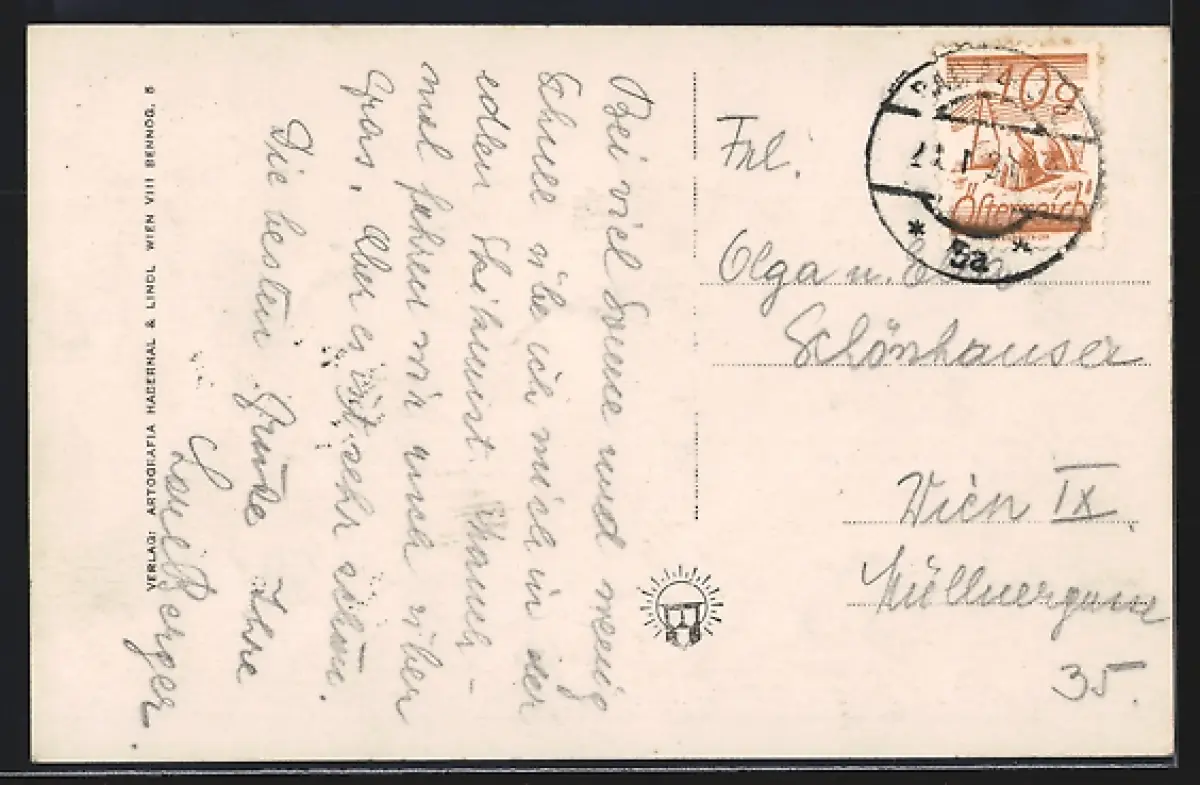 Bei viel Sonne und wenig
Schnee übe ich mich in der
edlen Skikunst. Manch-
mal fahren wir auch über
Gras. Aber es ist sehr schön.
Die besten Grüße Ihre
Berger.
VERLAG: ARTOGRAFIA HABERNAL & LINDL WIEN VIII BENNOG. 8
Frl.
Olga u.
Schönhauser
Wien IX
Müllnergasse
35.
10g
Österreich
5a